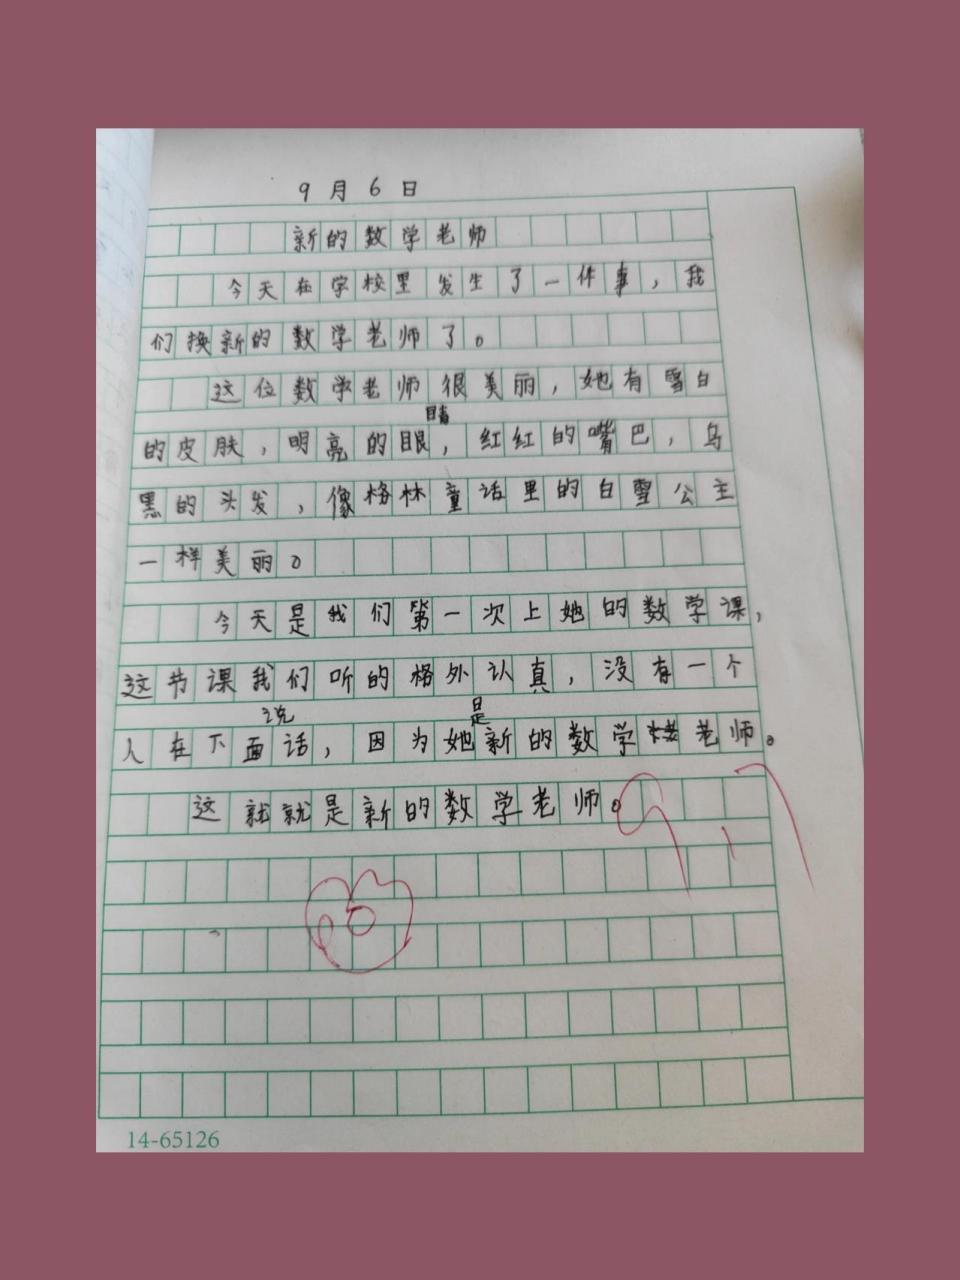 9月6日
新的数学老师
今天在学校里发生了一件事，我
们换新的数学老师了。
这位数学老师很美丽，她有雪白
的皮肤，明亮的眼睛，红红的嘴巴，乌
黑的头发，像格林童话里的白雪公主
一样美丽。
今天是我们第一次上她的数学课，
这节课我们听的格外认真，没有一个
人在下面说话，因为她是新的数学老师。
这就就是新的数学老师。
9.7
14-65126